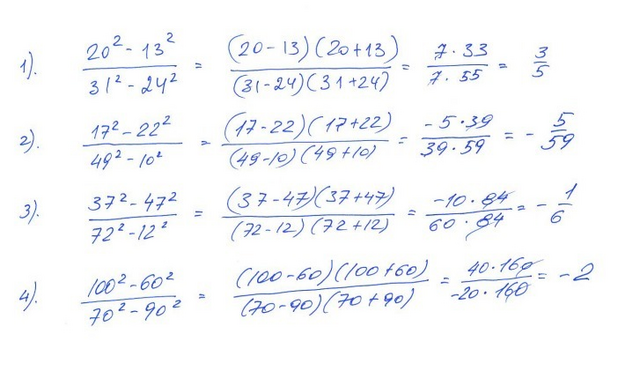 1). (20² - 13²)/(31² - 24²) = ((20-13)(20+13))/((31-24)(31+24)) = (7·33)/(7·55) = 3/5
2). (17² - 22²)/(49² - 10²) = ((17-22)(17+22))/((49-10)(49+10)) = (-5·39)/(39·59) = - 5/59
3). (37² - 47²)/(72² - 12²) = ((37-47)(37+47))/((72-12)(72+12)) = (-10·84)/(60·84) = - 1/6
4). (100² - 60²)/(70² - 90²) = ((100-60)(100+60))/((70-90)(70+90)) = (40·160)/(-20·160) = -2